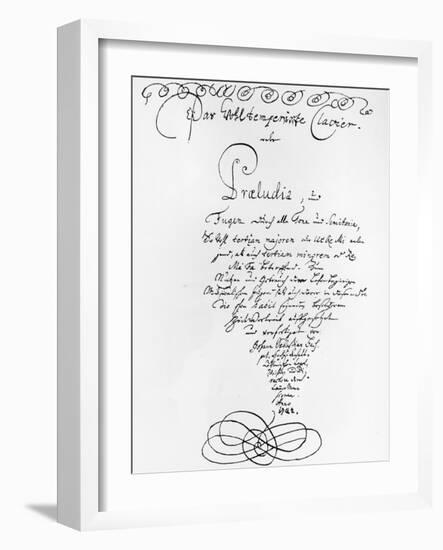 Das Wohltemperirte Clavier.
oder
Præludia, und
Fugen durch alle Tone und Semitonia,
So wohl tertiam majorem oder Ut Re Mi anlan-
gend, als auch tertiam minorem oder Re
Mi Fa betreffend. Zum
Nutzen und Gebrauch der Lehrbegierigen
Musicalischen Jugend, als auch derer in diesem
dio schon habil seyenden besonderem
ZeitVertreib auffgesetzet
und verfertiget von
Johann Sebastian Bach.
Anno
1722.